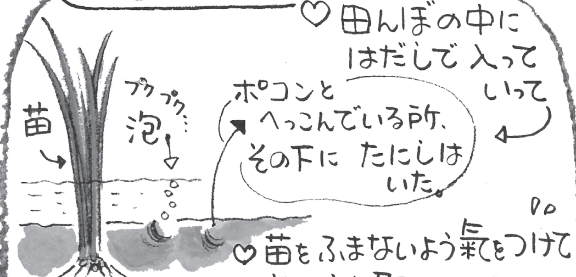 ♡田んぼの中に
はだしで入って
いって
苗
ブクブク…
泡
ポコンと
へっこんでいる所、
その下に たにしは
いた。
♡苗をふまないよう氣をつけて